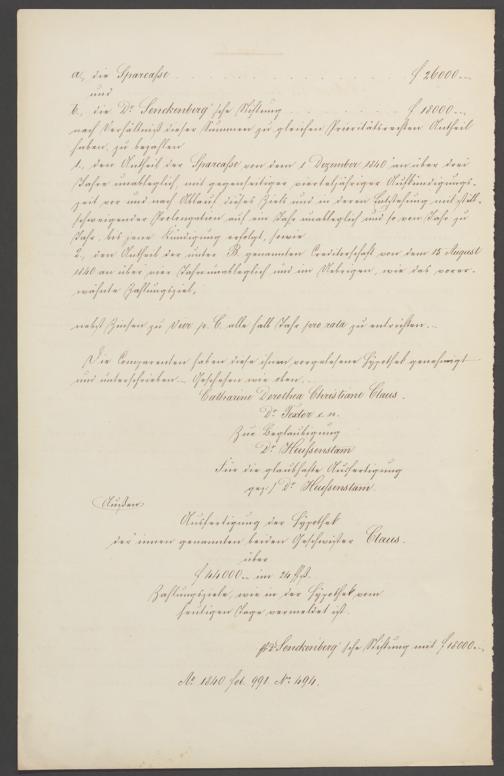 a., die Sparcasse . . . . . . . . . . f 26000.--
und
b., die Dr Senckenberg'sche Stiftung . . . . . . . f 18000.--,
nach Verhältniß dieser Summen zu gleichen Prioritätsrechten Antheil
haben, zu bezahlen
1., den Antheil der Sparcasse von dem 1 Dezember 1840 an über drei
Jahre unableglich, mit gegenseitiger vierteljähriger Aufkündigungs-
zeit vor und nach Ablauf dieses Ziels und in deren Entstehung mit still-
schweigender Prolongation auf ein Jahr unableglich und so von Jahr zu
Jahr, bis jene Kündigung erfolgt, sowie
2., den Antheil der unter B. genannten Creditorschaft von dem 15 August
1840 an über vier Jahre unableglich und im Uebrigen, wie das vorer-
wähnte Zahlungsziel;
nebst Zinsen zu vier p. C. alle halb Jahr pro rata zu entrichten. -
Die Comparenten haben diese ihnen vorgelesene Hypothek genehmigt
und unterschrieben. - Geschehen wie oben. -
Catharine Dorothea Christiane Claus.
Dr Textor c. n.
Zur Beglaubigung
Dr Heussenstam
Für die glaubhafte Ausfertigung
gez) Dr Heussenstam
Außen
Ausfertigung der Hypothek
der innen genannten beiden Geschwister Claus.
über
f 44000.- im 24 f. F.
Zahlungsziele, wie in der Hypothek vom
heutigen Tage vermeldet ist.
Senckenberg'sche Stiftung mit f 18000.-,
Ao 1840 fol. 991. No 494.